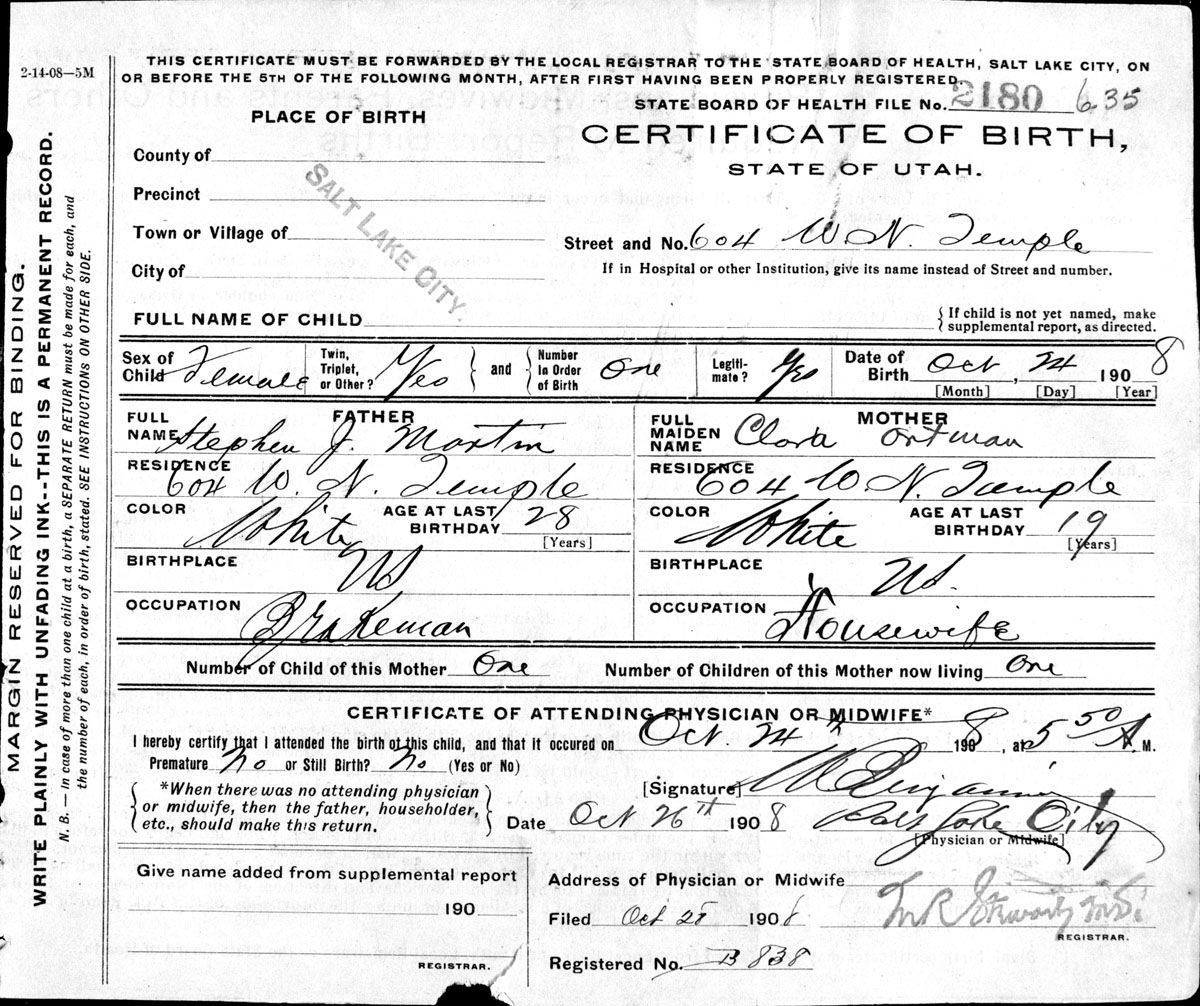 2-14-08—5M
THIS CERTIFICATE MUST BE FORWARDED BY THE LOCAL REGISTRAR TO THE STATE BOARD OF HEALTH, SALT LAKE CITY, ON
OR BEFORE THE 5TH OF THE FOLLOWING MONTH, AFTER FIRST HAVING BEEN PROPERLY REGISTERED
STATE BOARD OF HEALTH FILE No. 2180 635
PLACE OF BIRTH
CERTIFICATE OF BIRTH,
STATE OF UTAH.
County of
Precinct
Town or Village of
City of
SALT LAKE CITY.
Street and No. 604 W. N. Temple
If in Hospital or other Institution, give its name instead of Street and number.
FULL NAME OF CHILD
{ If child is not yet named, make
supplemental report, as directed.
Sex of Child Female
Twin, Triplet, or Other? Yes } and { Number In Order of Birth One
Legiti-mate? Yes
Date of Birth Oct, 24 1908
[Month] [Day] [Year]
FATHER
FULL NAME Stephen J. Martin
RESIDENCE 604 W. N. Temple
COLOR White AGE AT LAST BIRTHDAY 28
[Years]
BIRTHPLACE US
OCCUPATION Brakeman
MOTHER
FULL MAIDEN NAME Clara Ortman
RESIDENCE 604 W. N. Temple
COLOR White AGE AT LAST BIRTHDAY 19
[Years]
BIRTHPLACE US.
OCCUPATION Housewife
Number of Child of this Mother One Number of Children of this Mother now living One
CERTIFICATE OF ATTENDING PHYSICIAN OR MIDWIFE*
I hereby certify that I attended the birth of this child, and that it occured on Oct. 24th 1908, at 5 50 A. M.
Premature No or Still Birth? No (Yes or No)
{ *When there was no attending physician
or midwife, then the father, householder,
etc., should make this return. }
[Signature]
Date Oct 26th 1908 Salt Lake City
[Physician or Midwife]
Give name added from supplemental report
190
REGISTRAR.
Address of Physician or Midwife
Filed Oct 1908
REGISTRAR.
Registered No. B 838
MARGIN RESERVED FOR BINDING.
WRITE PLAINLY WITH UNFADING INK--THIS IS A PERMANENT RECORD.
N. B. — In case of more than one child at a birth, a SEPARATE RETURN must be made for each, and
the number of each, in order of birth, stated. SEE INSTRUCTIONS ON OTHER SIDE.